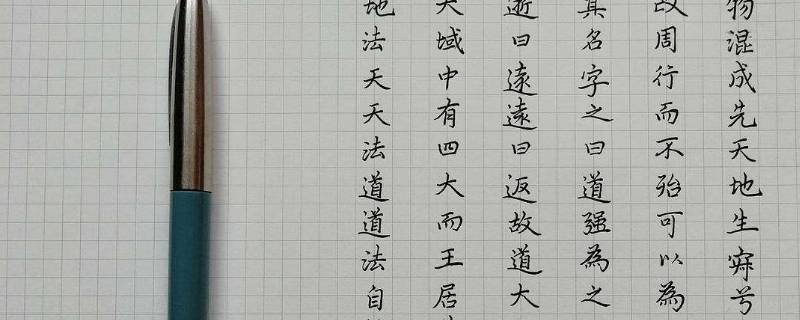 物混成先天地生寂兮
改周行而不殆可以為
其名字之曰道强為之
逝曰遠遠曰返故道大
大域中有四大而王居
地法天天法道道法自